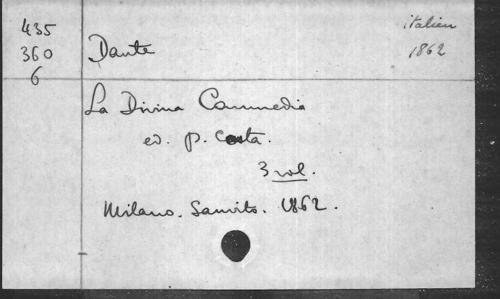 435
360
6
Dante
italien
1862
La Divina Commedia
ed. p. Costa.
3 vol.
Milano. Sanvito. 1862.